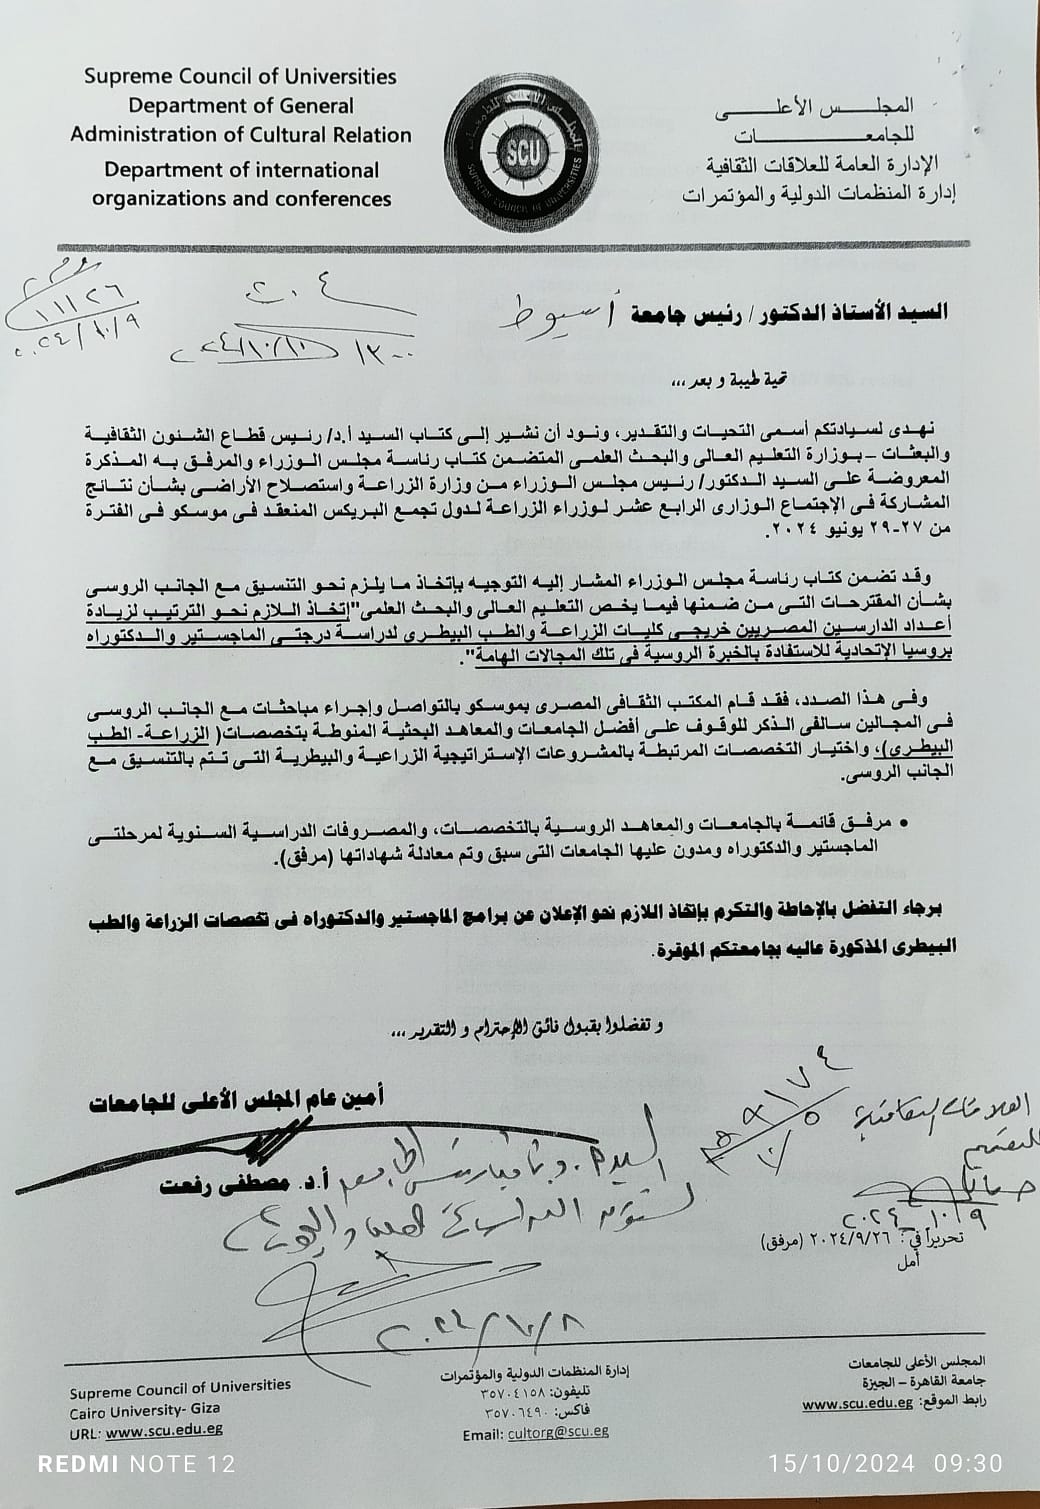 Supreme Council of Universities
Department of General
Administration of Cultural Relation
Department of international
organizations and conferences
SCU
SUPREME COUNCIL OF UNIVERSITIES
المجلس الأعلى
للجامعات
الإدارة العامة للعلاقات الثقافية
إدارة المنظمات الدولية والمؤتمرات
١١١٢٦
٢٠٢٤/١٠/٩
٢٠٢٤/١٠/١٠
السيد الأستاذ الدكتور/ رئيس جامعة أسيوط
تحية طيبة و بعد ،،،
نهدى لسيادتكم أسمى التحيات والتقدير، ونود أن نشير إلى كتاب السيد أ.د/ رئيس قطاع الشئون الثقافية
والبعثات – بوزارة التعليم العالى والبحث العلمى المتضمن كتاب رئاسة مجلس الوزراء والمرفق به المذكرة
المعروضة على السيد الدكتور/ رئيس مجلس الوزراء من وزارة الزراعة واستصلاح الأراضى بشأن نتائج
المشاركة فى الإجتماع الوزارى الرابع عشر لوزراء الزراعة لدول تجمع البريكس المنعقد فى موسكو فى الفترة
من ٢٧-٢٩ يونيو ٢٠٢٤.
وقد تضمن كتاب رئاسة مجلس الوزراء المشار إليه التوجيه بإتخاذ ما يلزم نحو التنسيق مع الجانب الروسى
بشأن المقترحات التى من ضمنها فيما يخص التعليم العالى والبحث العلمى"إتخاذ اللازم نحو الترتيب لزيادة
أعداد الدارسين المصريين خريجى كليات الزراعة والطب البيطرى لدراسة درجتى الماجستير والدكتوراه
بروسيا الإتحادية للاستفادة بالخبرة الروسية فى تلك المجالات الهامة".
وفى هذا الصدد، فقد قام المكتب الثقافى المصرى بموسكو بالتواصل وإجراء مباحثات مع الجانب الروسى
فى المجالين سالفى الذكر للوقوف على أفضل الجامعات والمعاهد البحثية المنوطة بتخصصات( الزراعة- الطب
البيطرى)، واختيار التخصصات المرتبطة بالمشروعات الإستراتيجية الزراعية والبيطرية التى تتم بالتنسيق مع
الجانب الروسى.
• مرفق قائمة بالجامعات والمعاهد الروسية بالتخصصات، والمصروفات الدراسية السنوية لمرحلتى
الماجستير والدكتوراه ومدون عليها الجامعات التى سبق وتم معادلة شهاداتها (مرفق).
برجاء التفضل بالإحاطة والتكرم بإتخاذ اللازم نحو الإعلان عن برامج الماجستير والدكتوراه فى تخصصات الزراعة والطب
البيطرى المذكورة عاليه بجامعتكم الموقرة.
و تفضلوا بقبول فائق الإحترام و التقدير ،،،
أمين عام المجلس الأعلى للجامعات
أ.د. مصطفى رفعت
العلاقات الثقافية
السيد أ.د نائب رئيس الجامعة
لشئون الدراسات العليا والبحوث
٢٠٢٤/١٠/٩
تحريراً في: ٢٠٢٤/٩/٢٦ (مرفق)
أمل
٢٠٢٤/١٠/٨
Supreme Council of Universities
Cairo University- Giza
URL: www.scu.edu.eg
إدارة المنظمات الدولية والمؤتمرات
تليفون: ٣٥٧٠٤١٥٨
فاكس: ٣٥٧٠٦٤٩٠
Email: cultorg@scu.eg
المجلس الأعلى للجامعات
جامعة القاهرة – الجيزة
رابط الموقع: www.scu.edu.eg
REDMI NOTE 12
15/10/2024 09:30